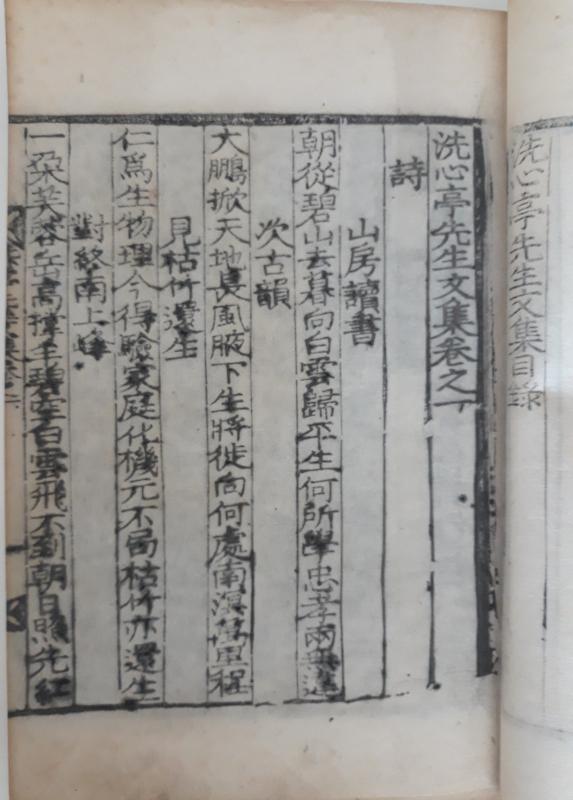 洗心亭先生文集目錄
洗心亭先生文集卷之一
詩
山房讀書
朝從碧山去暮向白雲歸平生何所學忠孝兩無違
次古韻
大鵬掀天地長風腋下生將徙向何處南溟萬里程
見枯竹還生
仁爲生物理今得驗家庭化機元不局枯竹亦還生
對終南上峰
一朶芙蓉岳高撑半碧空白雲飛不到朝日照先紅